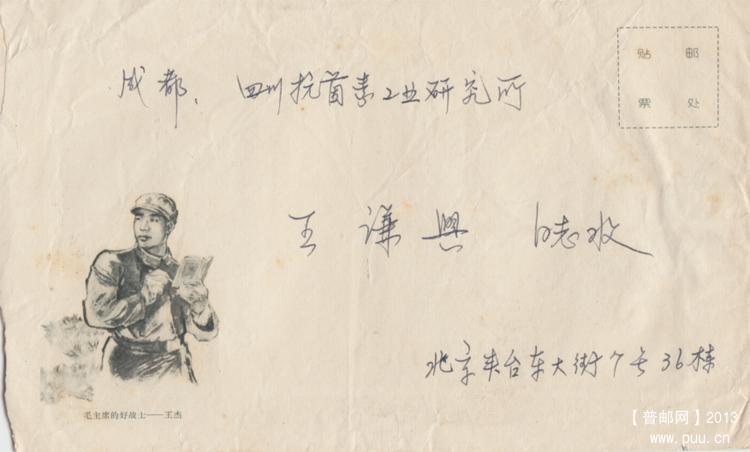 贴 邮
票 处
成都、四川抗菌素工业研究所
王谦興 同志收
北京丰台东大街7号36栋
毛主席的好战士——王杰
【普邮网】2013
www.puu.cn